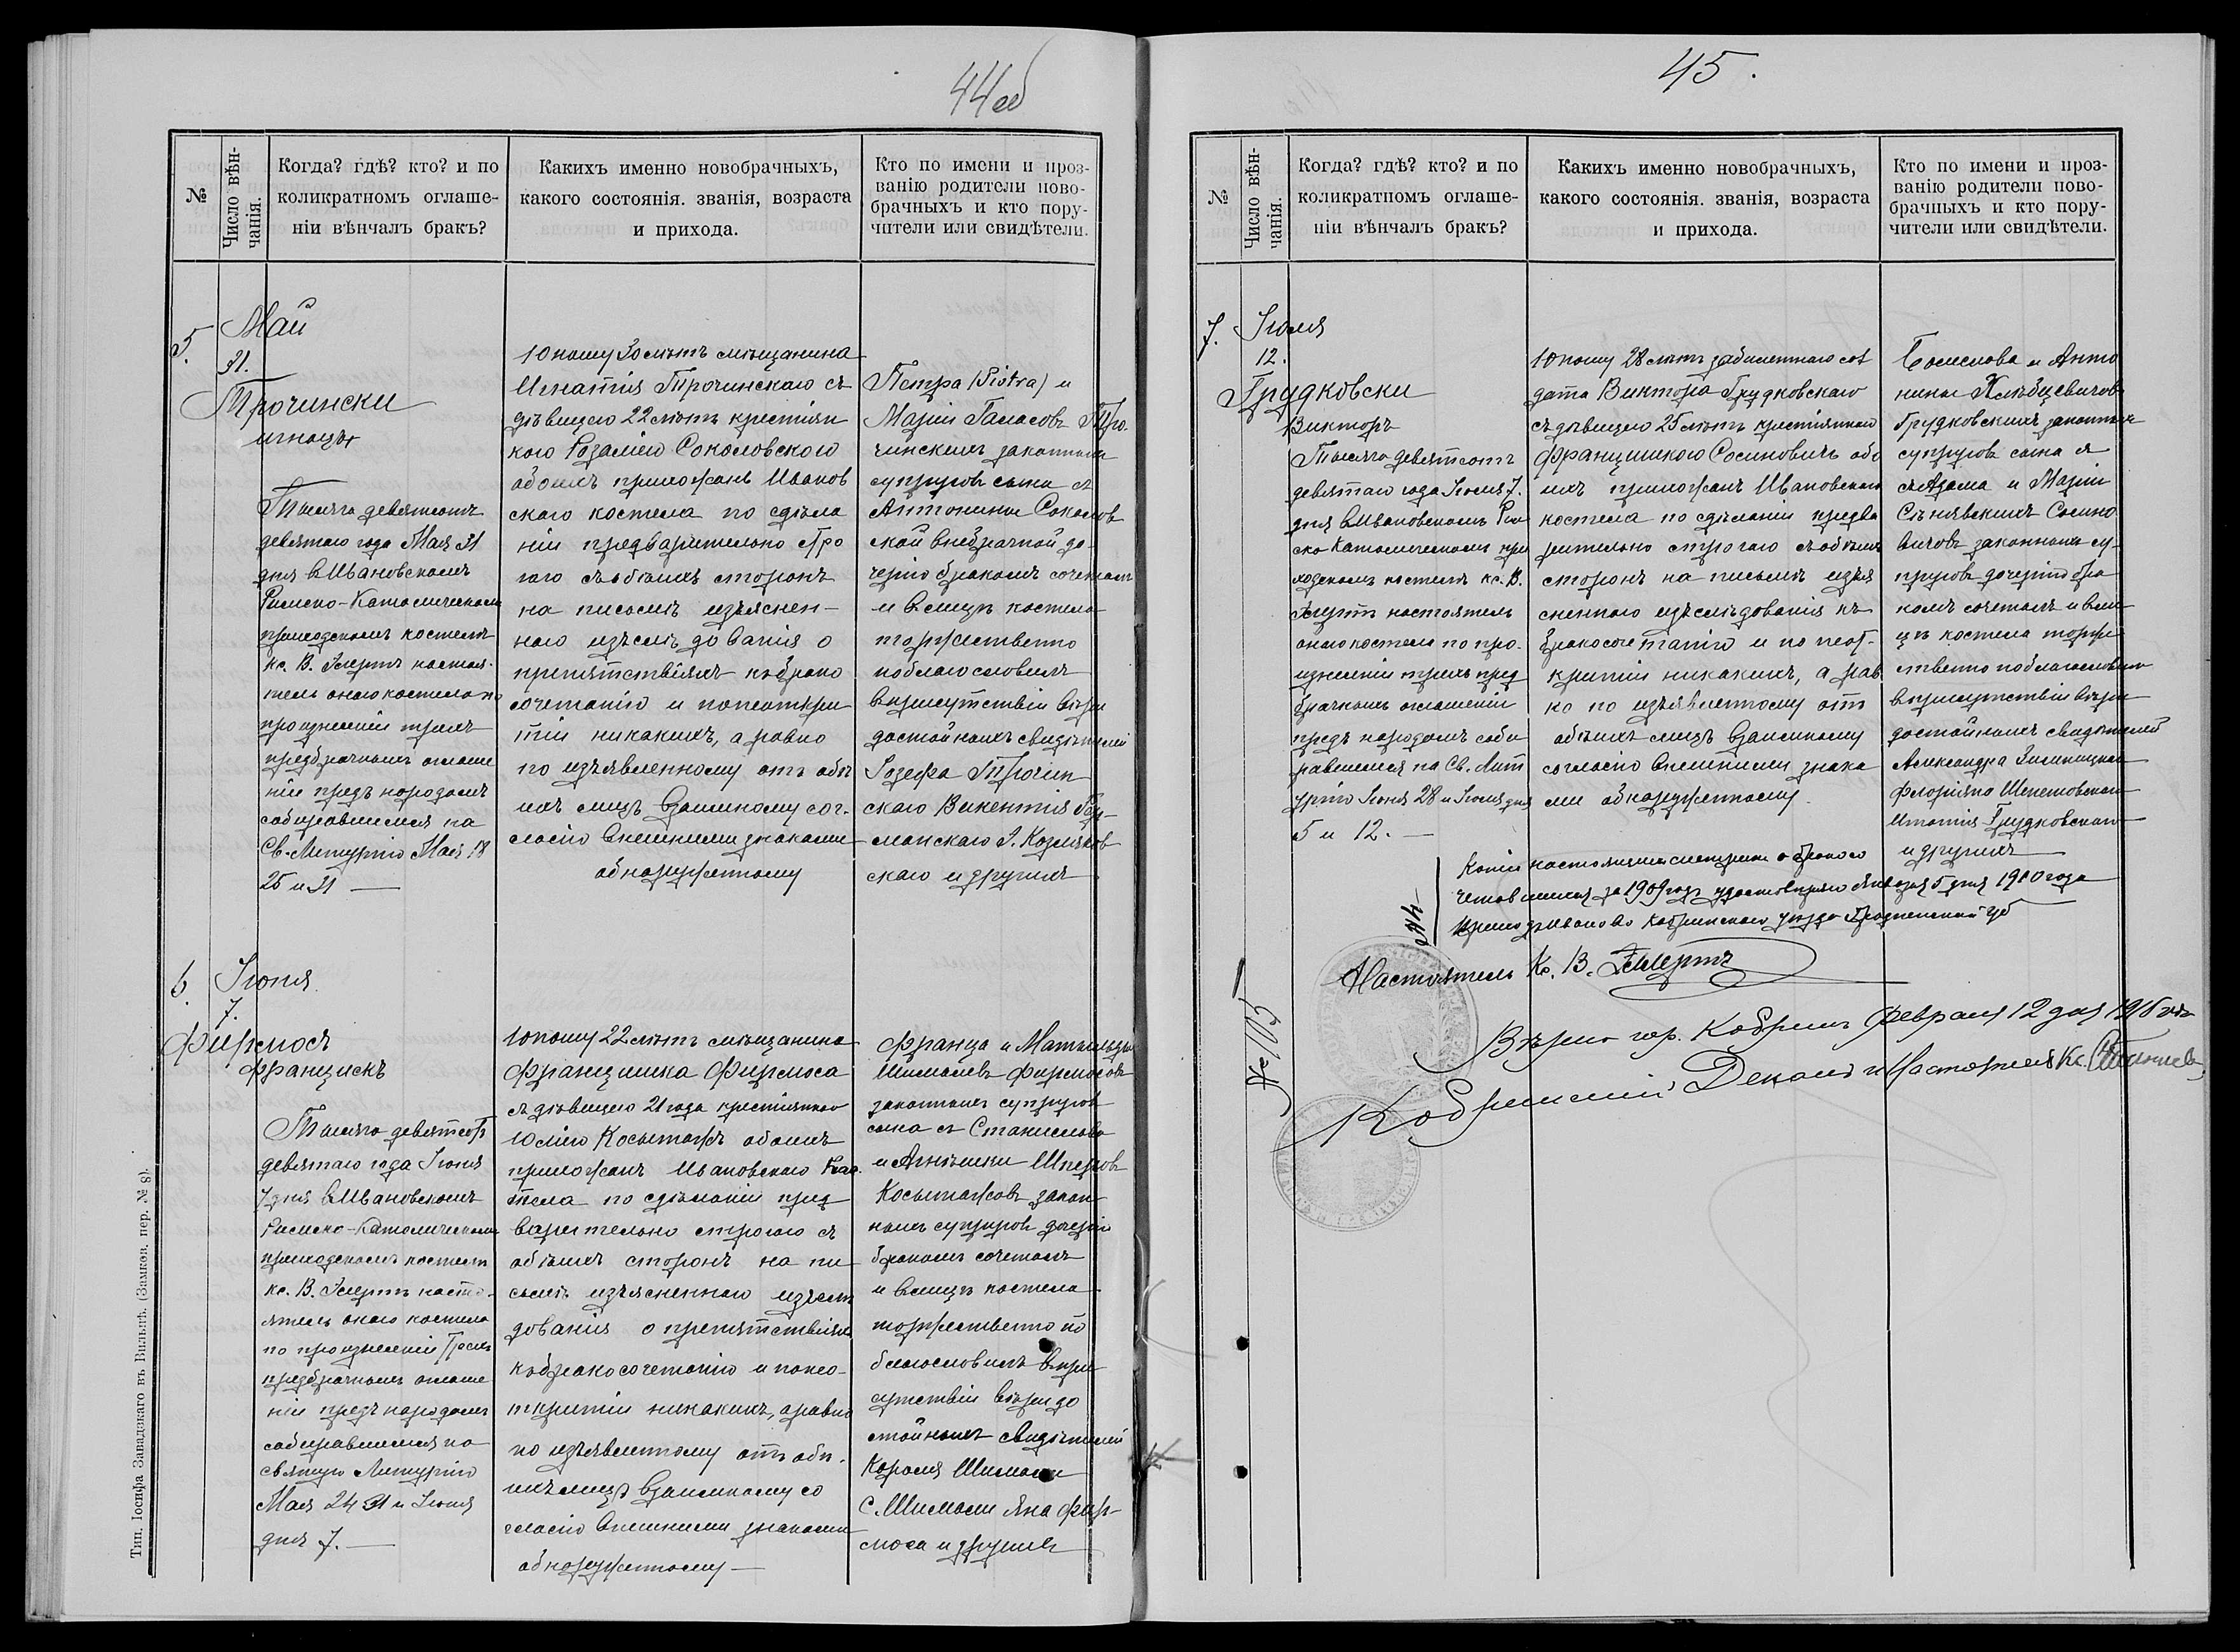 44об
№
Число вѣн-
чанія.
Когда? гдѣ? кто? и по
коликратномъ оглаше-
ніи вѣнчалъ бракъ?
Какихъ именно новобрачныхъ,
какого состоянія. званія, возраста
и прихода.
Кто по имени и проз-
ванію родители ново-
брачныхъ и кто пору-
чители или свидѣтели.
5.
Май
31.
Трочински
игнацъ
Тысяча девятьсотъ
девятаго года Мая 31
дня въ Ивановскомъ
Римско-Католическомъ
приходскомъ костелѣ
кс. В. настоя-
тель онаго костела по
произнесеніи трехъ
предбрачныхъ оглаше
ній предъ народомъ
собиравшимся на
Св. Литургію Мая 18
25 и 31 —
Юношу 30 лѣтъ мѣщанина
Игнатія Трочинскаго съ
дѣвицею 22 лѣтъ крестьян
кою Розаліею Соколовскою
обоихъ прихожанъ Иванов
скаго костела по сдѣла
ніи предварительно стро
гаго съ обѣихъ сторонъ
на письмѣ изъяснен-
наго изслѣдованія о
препятствіяхъ къ брако
сочетанію и по неоткры
тіи никакихъ, а равно
по изъявленному отъ обѣ
ихъ лицъ взаимному сог-
ласію внешними знаками
обнаруженному
Петра (Piotra) и
Маріи Галасовъ Тро-
чинскихъ законныхъ
супруговъ сына съ
Антонины Соколов
ской внебрачной до-
черію бракомъ сочеталъ
и въ лицѣ костела
торжественно
поблагословилъ
въ присутствіи вѣры
достойныхъ свидѣтелей
Іозефа Трочин
скаго Викентія
скаго и другихъ
6.
Іюня
7.
Фирмоса
Францискъ
Тысяча девятьсотъ
девятаго года Іюня
7 дня въ Ивановскомъ
Римско-Католическомъ
приходскомъ костелѣ
кс. В. насто-
ятель онаго костела
по произнесеніи трехъ
предбрачныхъ оглаше
ній предъ народомъ
собиравшимся на
святую Литургію
Мая 24 31 и Іюня
дня 7. —
Юношу 22 лѣтъ мѣщанина
Францишка Фирмоса
съ дѣвицею 21 года крестьянкою
Юліею Косытожъ обоихъ
прихожанъ Ивановскаго Кос
тела по сдѣланіи пред
варительно строгаго съ
обѣихъ сторонъ на пи
сьмѣ изъясненнаго изслѣ
дованія о препятствіяхъ
къ бракосочетанію и по нео-
ткрытіи никакихъ, а равно
по изъявленному отъ обѣ-
ихъ лицъ взаимному со
гласію внешними знаками
обнаруженному —
Франца и Матильды
Шималевъ Фирмосовъ
законныхъ супруговъ
сына съ Станислава
и Агнѣшки
Косытожовъ закон
ныхъ супруговъ дочерію
бракомъ сочеталъ
и въ лицѣ костела
торжественно по
благословилъ въ при
сутствіи вѣры до
стойныхъ свидѣтелей
Кароля Шималы
С. Шималы Яна Фир-
моса и другихъ
Тип. Іосифа Завадзкаго въ Вильнѣ. (Замков. пер. № 8).
45.
№
Число вѣн-
чанія.
Когда? гдѣ? кто? и по
коликратномъ оглаше-
ніи вѣнчалъ бракъ?
Какихъ именно новобрачныхъ,
какого состоянія. званія, возраста
и прихода.
Кто по имени и проз-
ванію родители ново-
брачныхъ и кто пору-
чители или свидѣтели.
7.
Іюля
12.
Грудковски
Викторъ
Тысяча девятьсотъ
девятаго года Іюля
дня въ Ивановскомъ Рим
ско-Католическомъ при
ходскомъ костелѣ кс. В.
настоятель
онаго костела по про-
изнесеніи трехъ пред
брачныхъ оглашеній
предъ народомъ соби
равшимся на Св. Лит
ургію Іюня 28 и Іюля дня
5 и 12. —
Юношу 28 лѣтъ сол
дата Виктора Грудковскаго
съ дѣвицею 25 лѣтъ крестьянкою
Францишкою Сосиновичъ обо
ихъ прихожанъ Ивановскаго
костела по сдѣланіи предва
рительно строгаго съ обѣихъ
сторонъ на письмѣ изъя
сненнаго изслѣдованія къ
бракосочетанію и по неот-
крытіи никакихъ, а рав
но по изъявленному отъ
обѣихъ лицъ взаимному
согласію внешними знака
ми обнаруженному.
Болеслава и Анто
нины
Грудковскихъ законныхъ
супруговъ сына съ
Адама и Маріи
Сосино
вичовъ законныхъ су-
пруговъ дочерію бра
комъ сочеталъ и въ ли
цѣ костела торже
ственно поблагословилъ
въ присутствіи вѣры
достойныхъ свидѣтелей
Александра
Флоріяна
Игнатія Грудковскаго
и другихъ
Копіи настоящихъ метрикъ о бракосо
четавшихся за 1909 годъ удостовѣряю Января 5 дня 1910 года
Кобринскаго уѣзда Гродненской губ
Настоятель Кс. В.
№ 105
Вѣрно гор. Кобринъ Февраля 12 дня 1910 г.
Кобринскій Деканъ и Настоятель Кс.